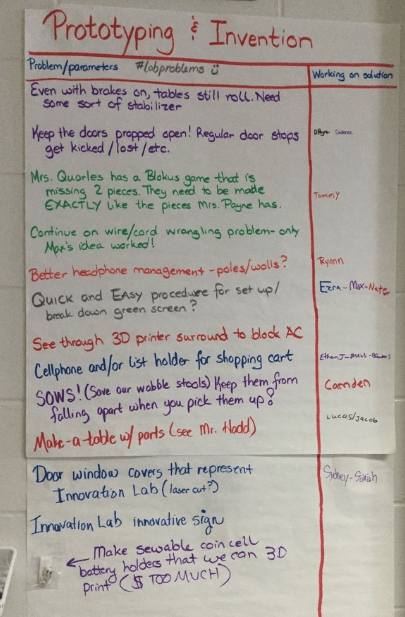 Prototyping & Invention
Problem/parameters #labproblems
Working on solution
Even with brakes on, tables still roll. Need
some sort of stabilizer
Keep the doors propped open! Regular door stops
get kicked/lost/etc.
Mrs. Quarles has a Blokus game that is
missing 2 pieces. They need to be made
EXACTLY like the pieces Mrs. Payne has.
Tommy
Continue on wire/cord wrangling problem - only
Max's idea worked!
Better headphone management - poles/walls?
Ryann
Quick and Easy procedure for set up/
break down green screen?
Ezra - Max - Nate
See through 3D printer surround to block AC
Cellphone and/or list holder for shopping cart
Ethan J
SOWS! (Save our wobble stools) Keep them from
falling apart when you pick them up?
Camden
Make-a-table w/ parts (see Mr. Hadd)
Lucas/Jacob
Door window covers that represent
Innovation Lab (laser cut?)
Sydney - Sarah
Innovation Lab innovative sign
← Make sewable coin cell
battery holders that we can 3D
print ($ TOO MUCH)